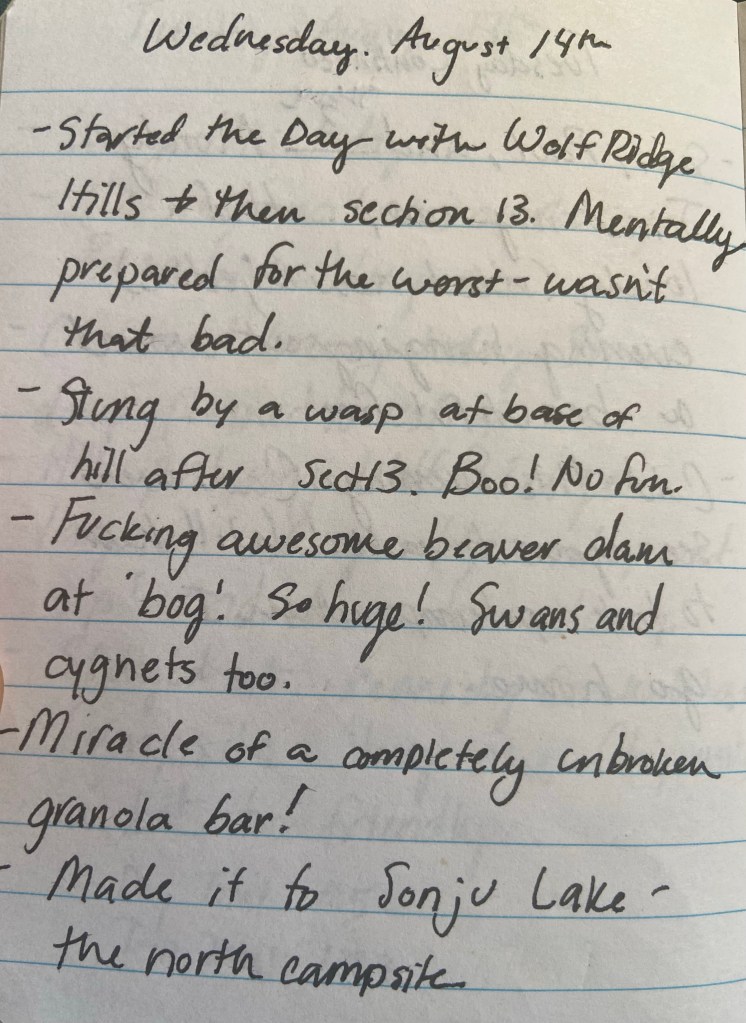 Wednesday. August 14th
- Started the Day with Wolf Ridge
Hills & then section 13. Mentally
prepared for the worst - wasn't
that bad.
- Stung by a wasp at base of
hill after Sect 13. Boo! No fun.
- Fucking awesome beaver dam
at 'bog'. So huge! Swans and
cygnets too.
- Miracle of a completely unbroken
granola bar!
- Made it to Sonju Lake -
the north campsite.